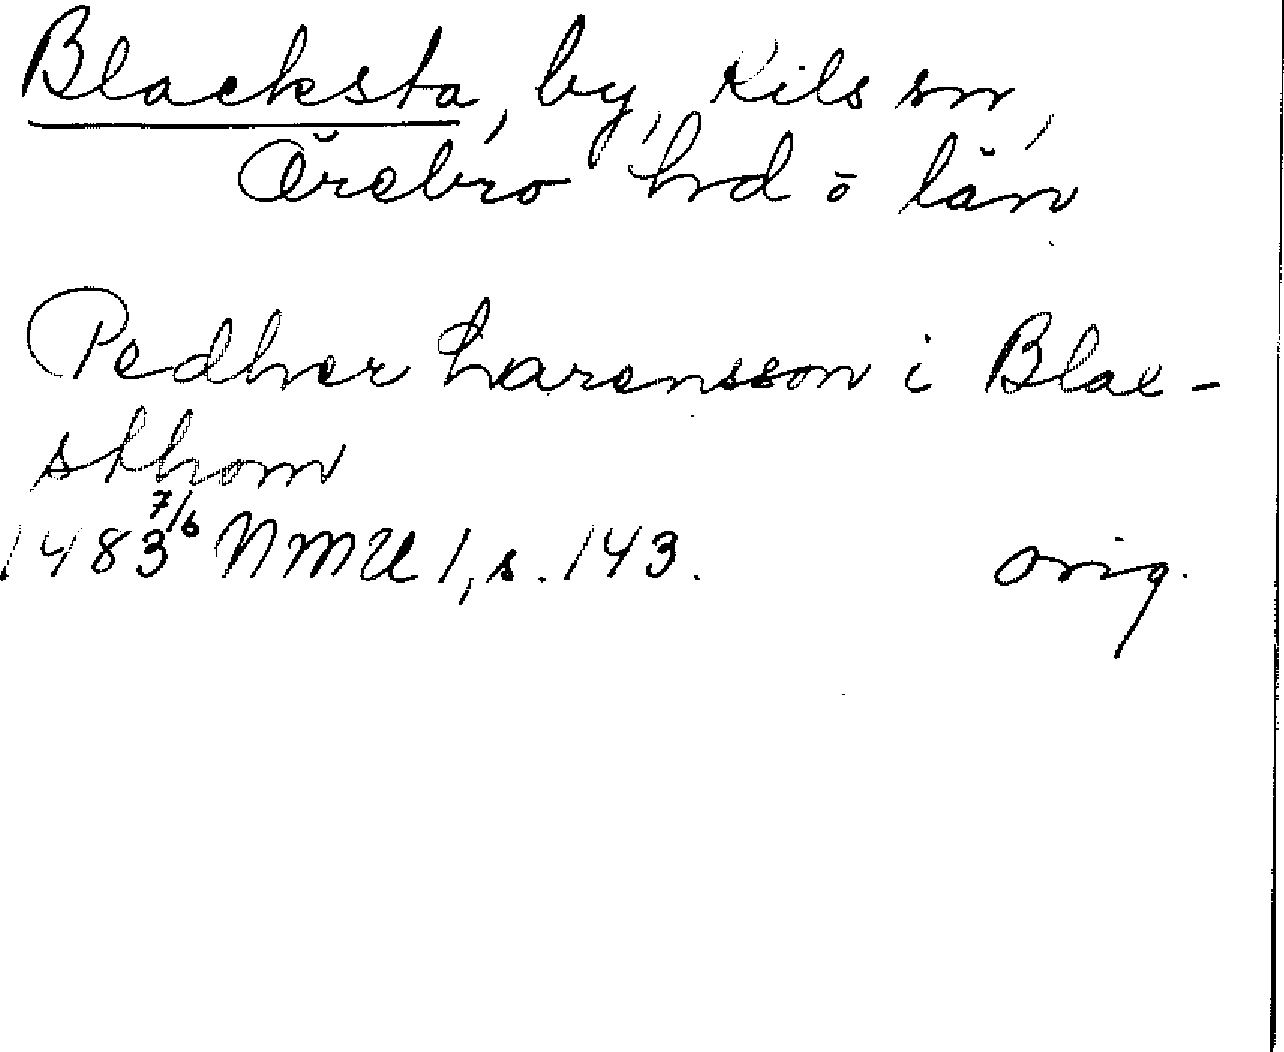 Blacksta, by, Kils sn,
Örebro hd o län
Pedher Larensson i Blac-
sthom
1483 7/6 NMU 1, s. 143. orig.